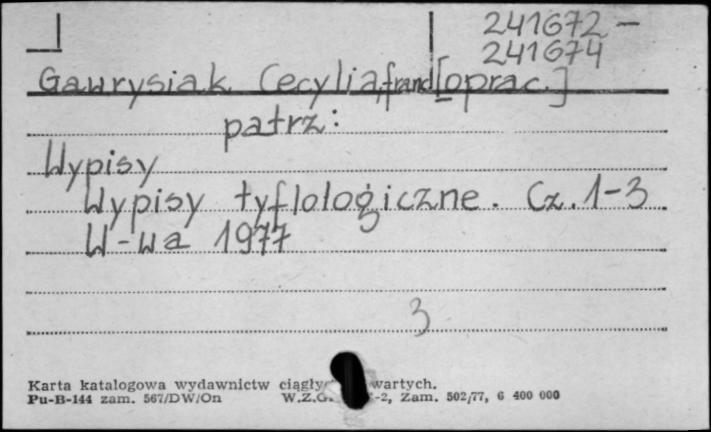 241672 —
241674
Gawrysiak Cecylia, frand [oprac.]
patrz:
Wypisy
Wypisy tyflologiczne. Cz. 1-3
W-wa 1977
3
Karta katalogowa wydawnictw ciągły wartych.
Pu-B-144 zam. 567/DW/On W.Z.G. -2, Zam. 502/77, 6 400 000